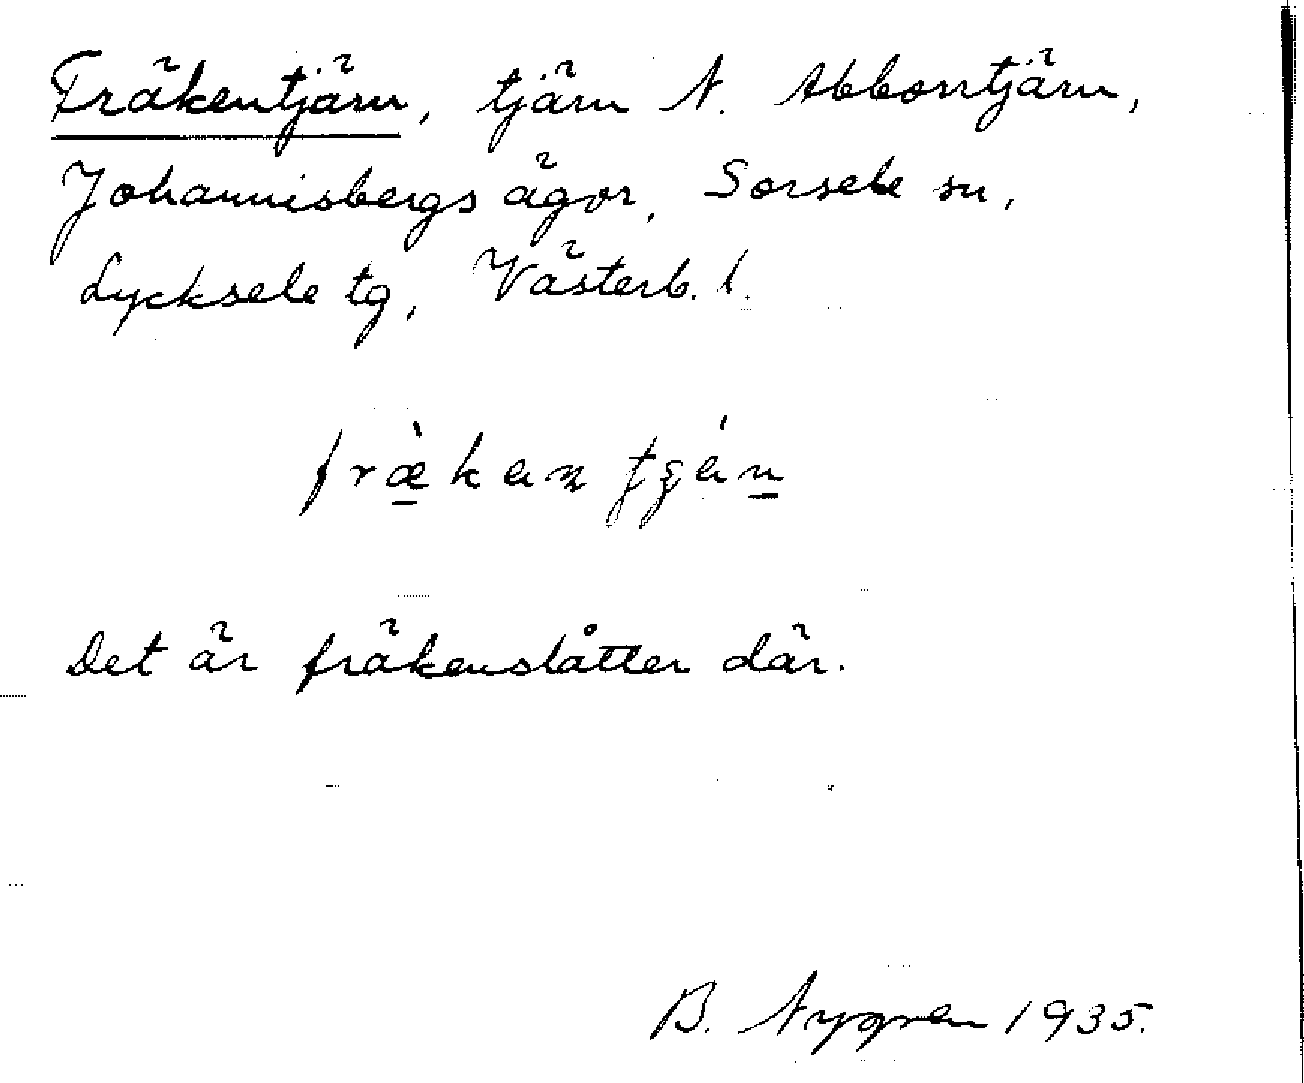 Fräkentjärn, tjärn N. Abborrtjärn,
Johannisbergs ägor, Sorsele sn,
Lycksele tg, Västerb. l.
Det är fräkenslåtter där.
B. Nygren 1935.